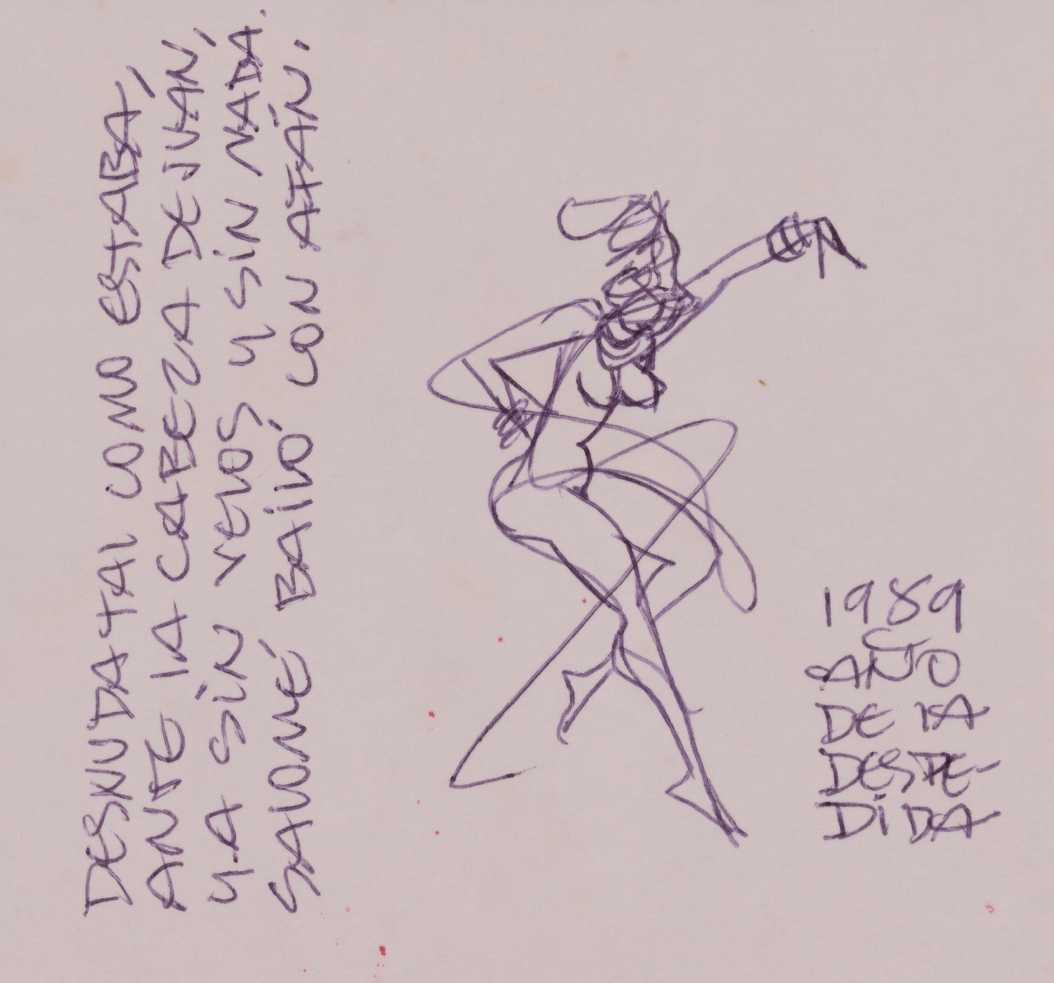 DESNUDA TAL COMO ESTABA,
ANTE LA CABEZA DE JUAN,
YA SIN VELOS Y SIN NADA.
SALOMÉ BAILÓ CON AFÁN.
1989
AÑO
DE LA
DESPE-
DIDA